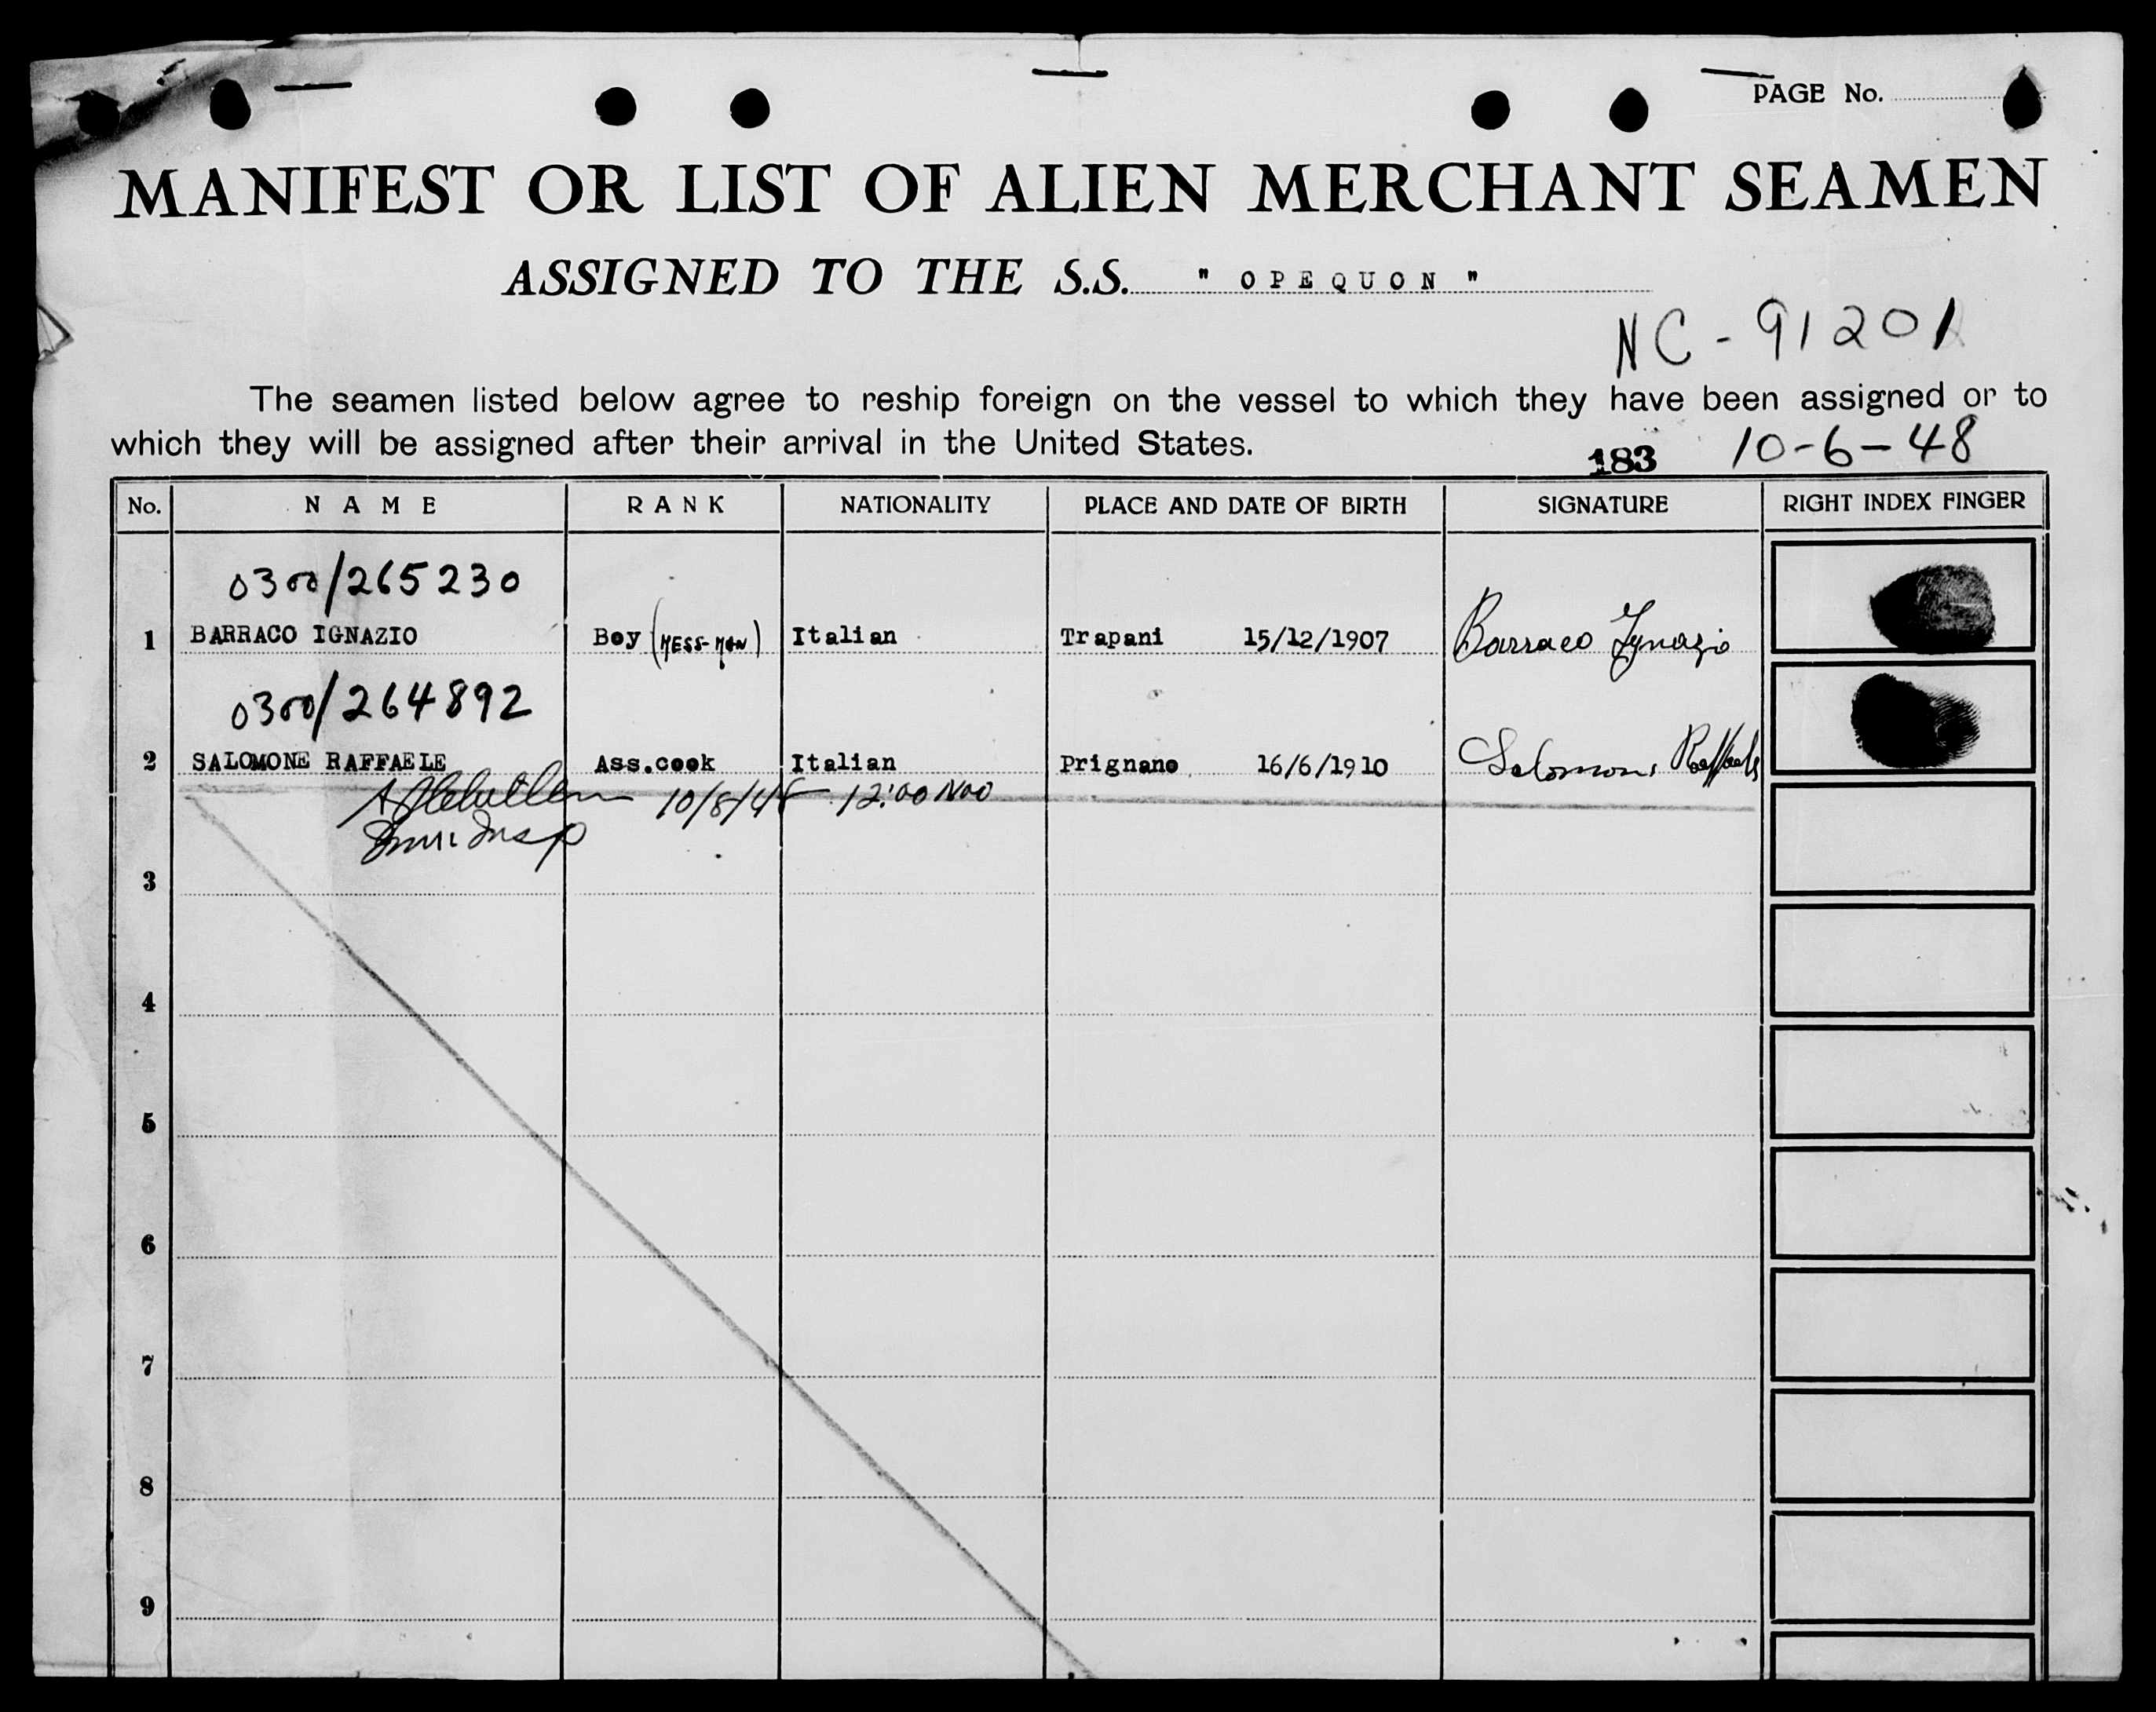 PAGE No.
MANIFEST OR LIST OF ALIEN MERCHANT SEAMEN
ASSIGNED TO THE S.S. " OPEQUON "
NC-91201
The seamen listed below agree to reship foreign on the vessel to which they have been assigned or to
which they will be assigned after their arrival in the United States.
183 10-6-48
No. NAME RANK NATIONALITY PLACE AND DATE OF BIRTH SIGNATURE RIGHT INDEX FINGER
0300/265230
1 BARRACO IGNAZIO Boy (MESS-MAN) Italian Trapani 15/12/1907 Barraco Ignazio
0300/264892
2 SALOMONE RAFFAELE Ass.cook Italian Prignano 16/6/1910 Salomone Raffaele
10/8/48 12:00 Noo
Imm. Insp
3
4
5
6
7
8
9